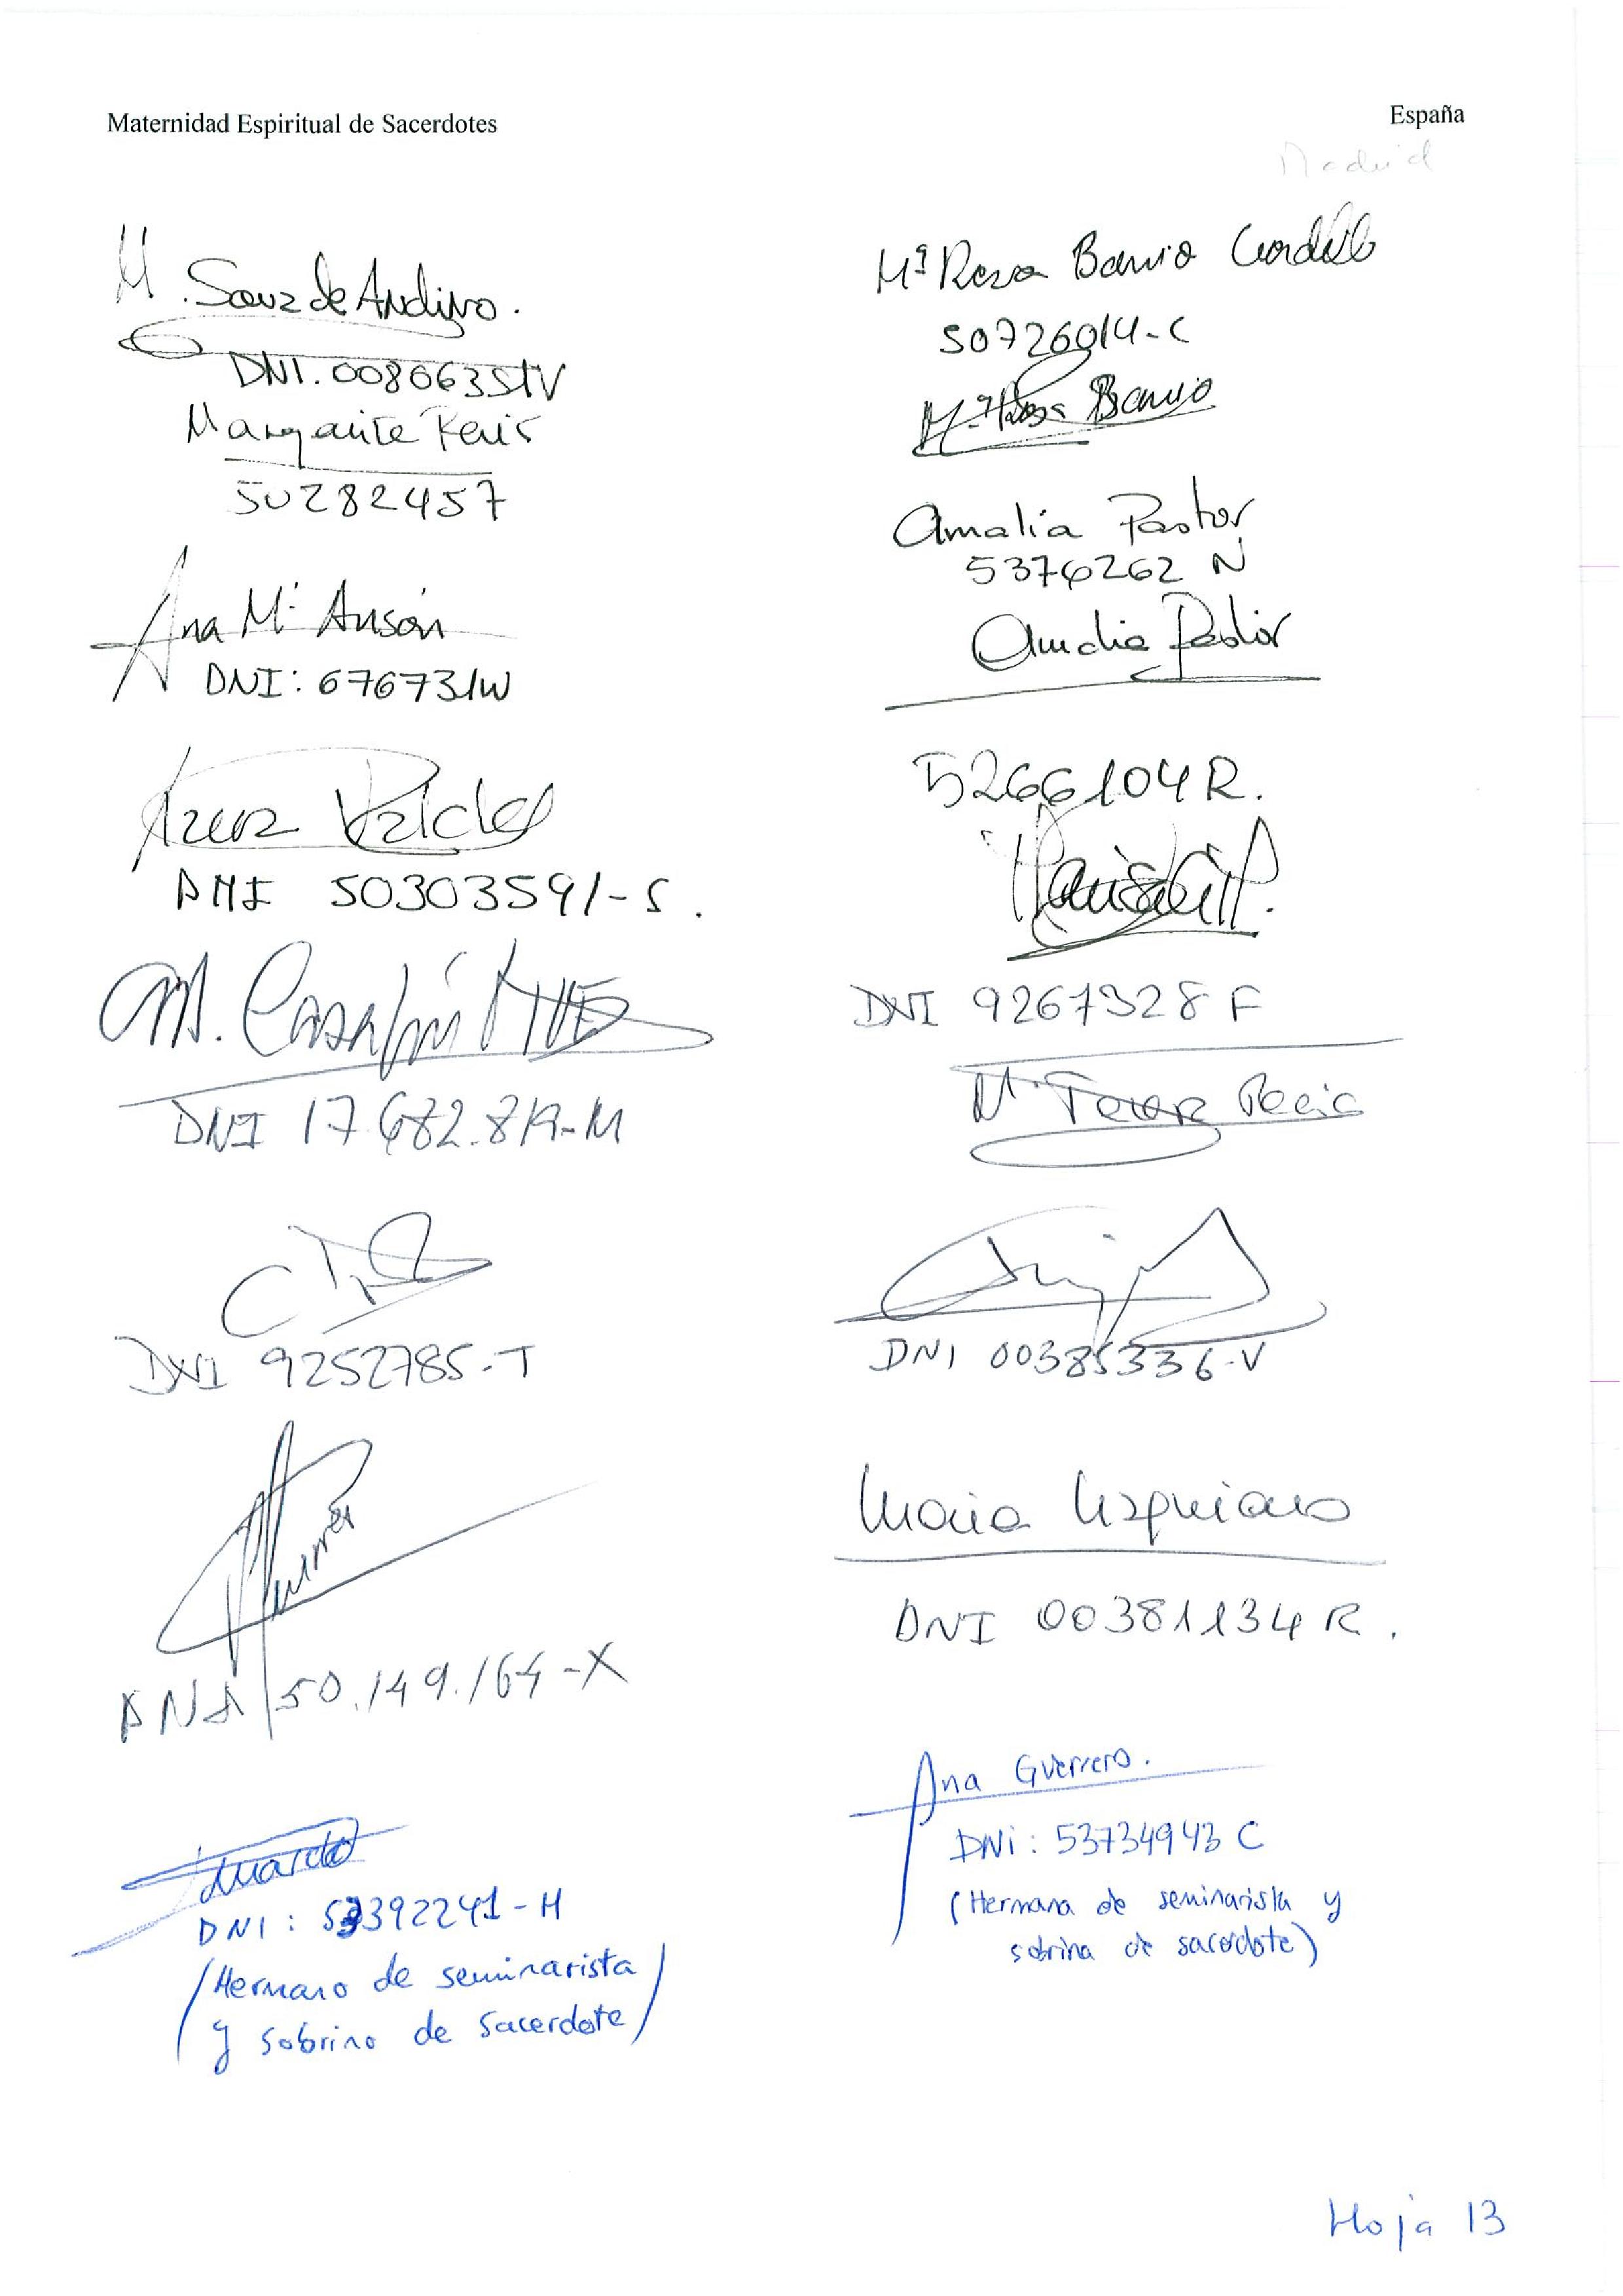 Maternidad Espiritual de Sacerdotes
España
Madrid
M. Sanz de Andino.
DNI. 00806351V
50282457
Ana Mª Ansón
DNI: 676731W
Valdes
DNI 50303591-S.
M.
DNI 17.682.819-M
DNI 9252785-T
50.149.164-X
Eduardo
DNI: 53392241-H
(Hermano de seminarista
y sobrino de sacerdote)
Mª Rosa Barrio
50726014-C
Mª Rosa Barrio
Amalia Pastor
5376262 N
Amalia Pastor
5266104R.
DNI 9267328 F
Mª Teresa Recio
DNI 00385336-V
María Uzquiano
DNI 00381134 R.
Ana Guerrero.
DNi: 53734943 C
(Hermana de seminarista y
sobrina de sacerdote)
Hoja 13